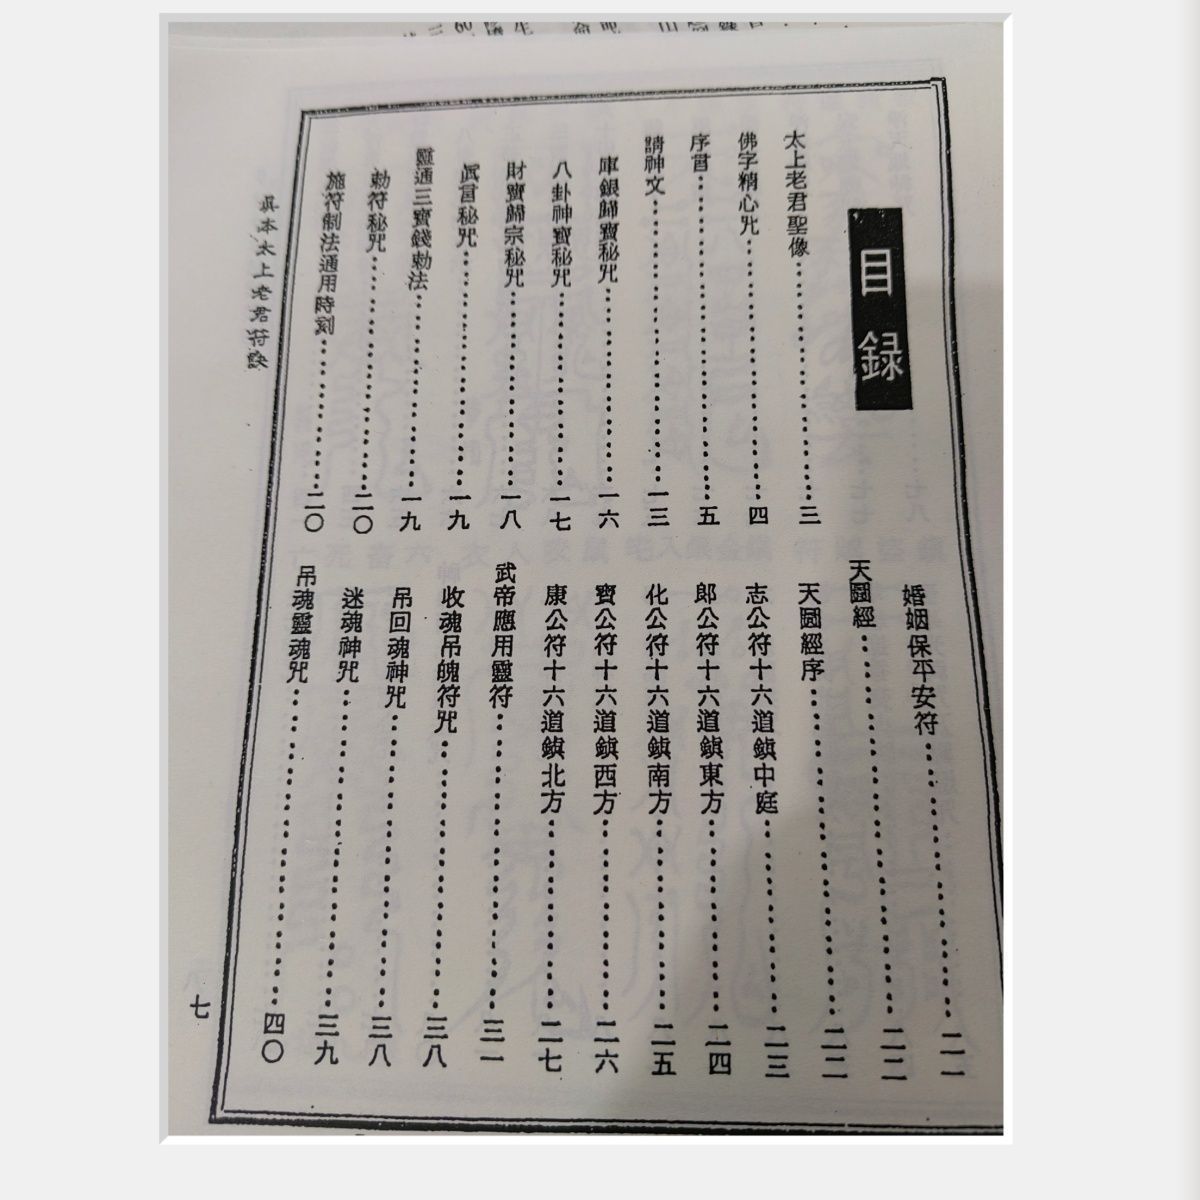 目録
太上老君聖像…三
佛字精心咒…四
序言…五
請神文…一三
庫銀歸寶秘咒…一六
八卦神寶秘咒…一七
財寶歸宗秘咒…一八
眞言秘咒…一九
靈通三寶錢勅法…一九
勅符秘咒…二〇
施符制法通用時刻…二〇
婚姻保平安符…二一
天圖經…二二
天圖經序…二二
志公符十六道鎮中庭…二三
郎公符十六道鎮東方…二四
化公符十六道鎮南方…二五
寶公符十六道鎮西方…二六
康公符十六道鎮北方…二七
武帝應用靈符…三一
收魂吊魄符咒…三八
吊回魂神咒…三八
迷魂神咒…三九
吊魂靈魂咒…四〇
眞本太上老君符訣
七